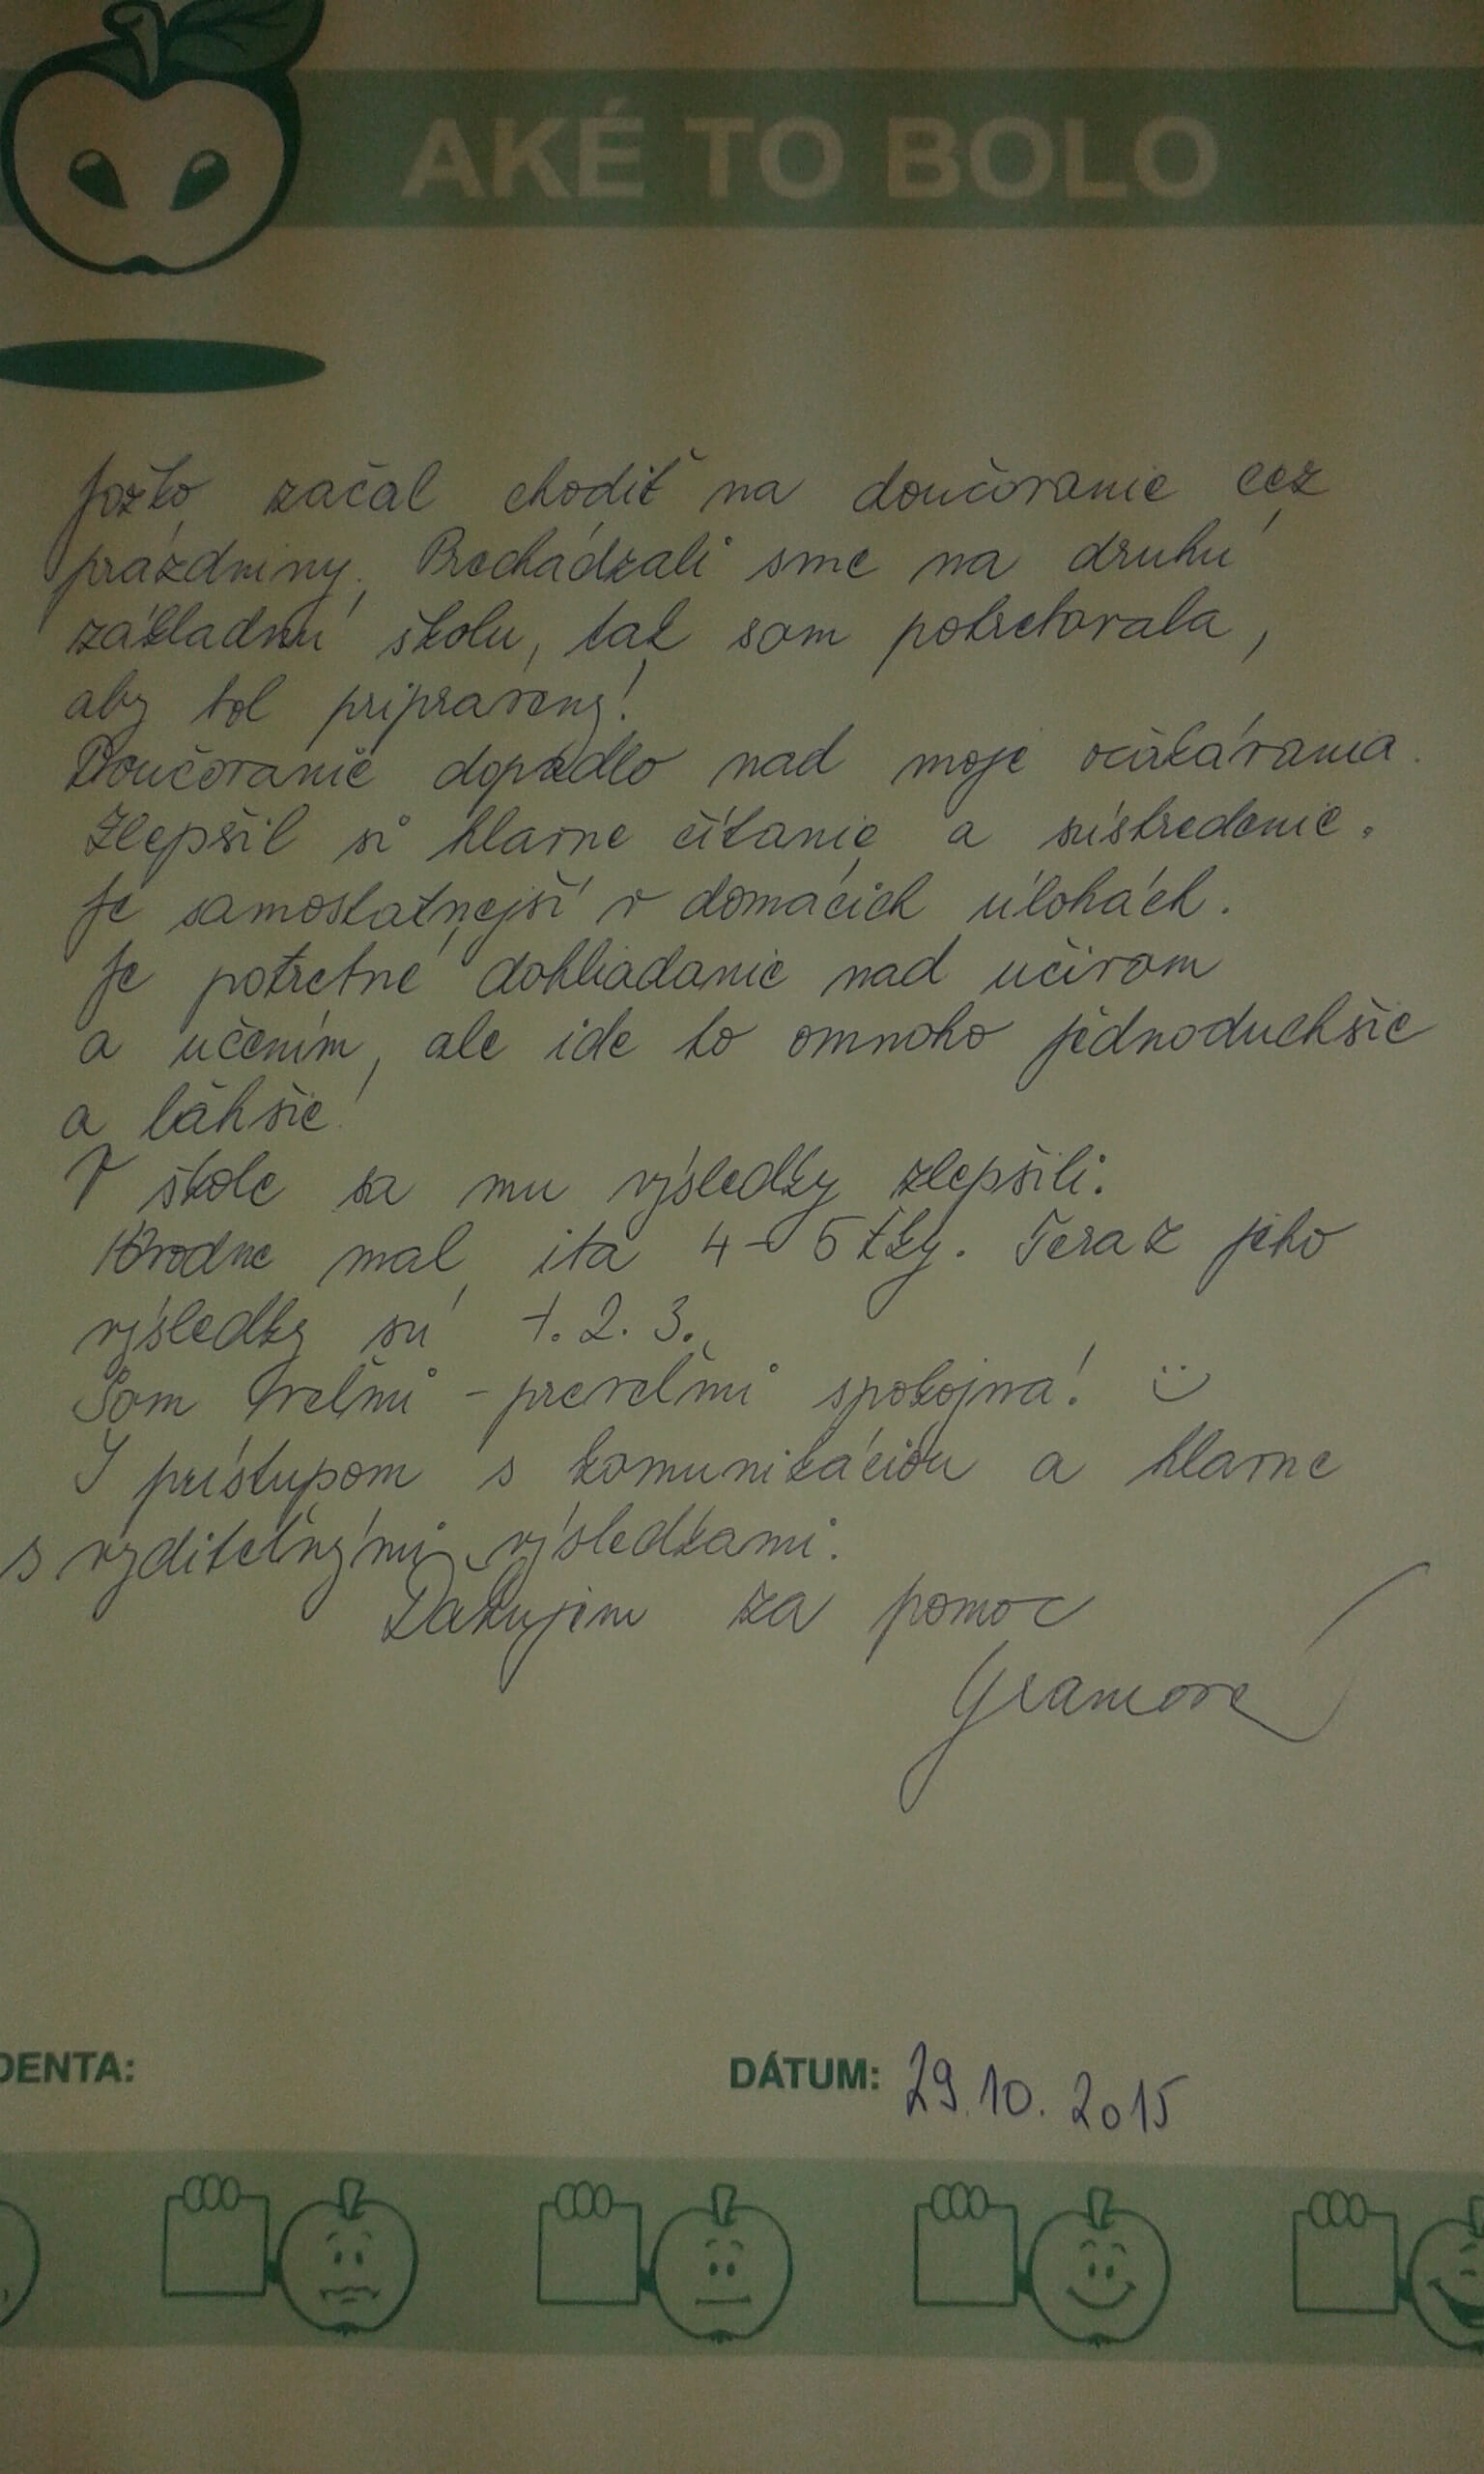 AKÉ TO BOLO
Jožko začal chodiť na doučovanie cez
prázdniny. Prechádzali sme na druhú
základnú školu, tak som potrebovala,
aby bol pripravený!
Doučovanie dopadlo nad moje očakávania.
Zlepšil si hlavne čítanie a sústredenie.
Je samostatnejší v domácich úlohách.
Je potrebné dohliadanie nad učivom
a učením, ale ide to omnoho jednoduchšie
a ľahšie!
V škole sa mu výsledky zlepšili.
mal 4-5tky. Teraz jeho
výsledky sú 1. 2. 3.
Som veľmi - preveľmi spokojná! :)
S prístupom s komunikáciou a hlavne
s vyditeľnými výsledkami.
Ďakujem za pomoc
DENTA:
DÁTUM: 29.10.2015